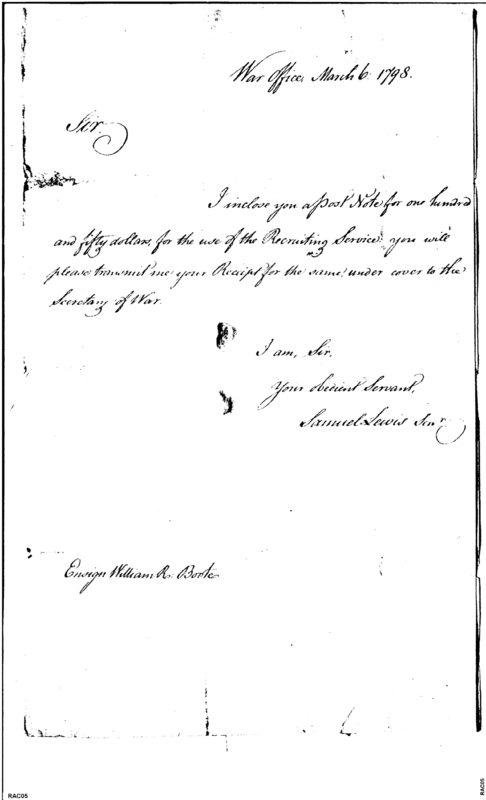 War Office March 6. 1798.
Sir.
I inclose you a Post Note for one hundred
and fifty dollars, for the use of the Recruiting Service you will
please transmit me your Receipt for the same, under cover to the
Secretary of War.
I am, Sir.
Your obedient Servant,
Samuel Lewis Senr
Ensign William R. Boote
RAC05
RAC05